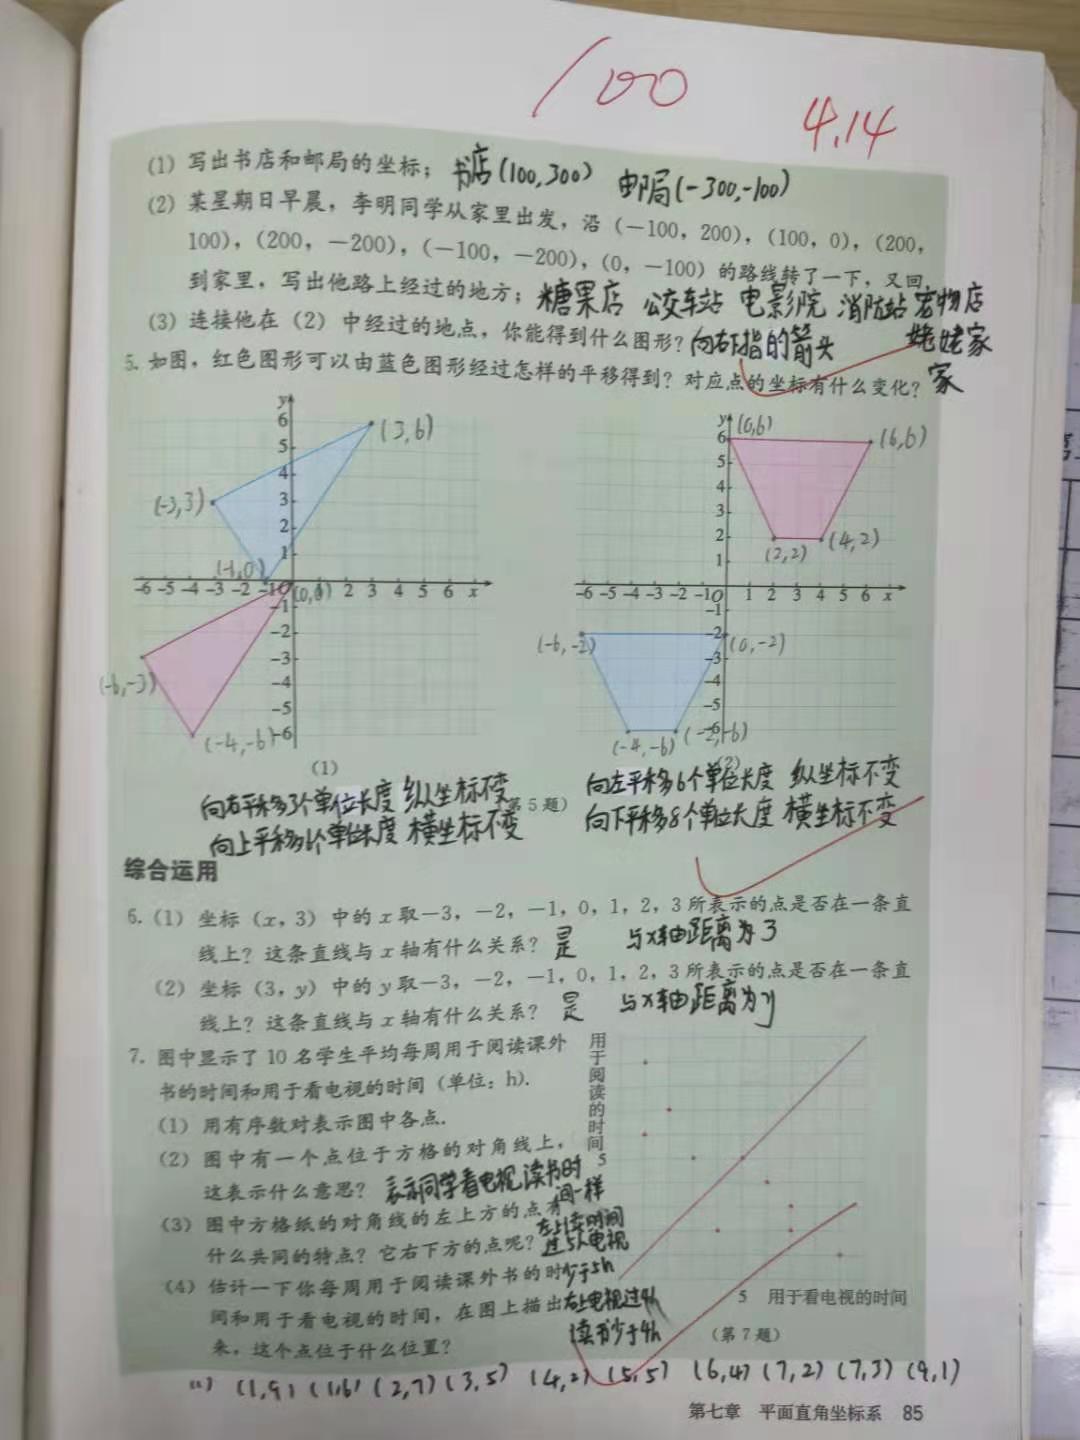 100
4.14
(1) 写出书店和邮局的坐标; 书店(100,300) 邮局(-300,-100)
(2) 某星期日早晨，李明同学从家里出发，沿 (-100, 200), (100, 0), (200,
100), (200, -200), (-100, -200), (0, -100) 的路线转了一下，又回
到家里，写出他路上经过的地方; 糖果店 公交车站 电影院 消防站 宠物店
姥姥家
家
(3) 连接他在 (2) 中经过的地点，你能得到什么图形? 向右下指的箭头
5. 如图，红色图形可以由蓝色图形经过怎样的平移得到? 对应点的坐标有什么变化?
y
6
5
4
3
2
1
-6 -5 -4 -3 -2 -1 O 1 2 3 4 5 6 x
-1
-2
-3
-4
-5
-6
(3,6)
(-3,3)
(-1,0)
(0,0)
(-6,-3)
(-4,-6)
(1)
y
6
5
4
3
2
1
-6 -5 -4 -3 -2 -1 O 1 2 3 4 5 6 x
-1
-2
-3
-4
-5
-6
(0,6)
(6,6)
(2,2)
(4,2)
(-6,-2)
(0,-2)
(-4,-6)
(-2,-6)
(2)
(第 5 题)
向右平移3个单位长度 纵坐标不变
向上平移6个单位长度 横坐标不变
向左平移6个单位长度 纵坐标不变
向下平移8个单位长度 横坐标不变
综合运用
6. (1) 坐标 (x, 3) 中的 x 取-3, -2, -1, 0, 1, 2, 3 所表示的点是否在一条直
线上? 这条直线与 x 轴有什么关系? 是 与x轴距离为3
(2) 坐标 (3, y) 中的 y 取-3, -2, -1, 0, 1, 2, 3 所表示的点是否在一条直
线上? 这条直线与 x 轴有什么关系? 是 与x轴距离为y
7. 图中显示了 10 名学生平均每周用于阅读课外
书的时间和用于看电视的时间 (单位: h).
(1) 用有序数对表示图中各点.
(2) 图中有一个点位于方格的对角线上，
这表示什么意思? 表示同学看电视读书时
间一样
(3) 图中方格纸的对角线的左上方的点有
什么共同的特点? 它右下方的点呢?
(4) 估计一下你每周用于阅读课外书的时
间和用于看电视的时间，在图上描出
来，这个点位于什么位置?
少于5h
右上电视过4h
读书少于4h
用于阅读的时间
5
5 用于看电视的时间
(第 7 题)
(1,9) (1,6) (2,7) (3,5) (4,2) (5,5) (6,4) (7,2) (7,3) (9,1)
第七章 平面直角坐标系 85